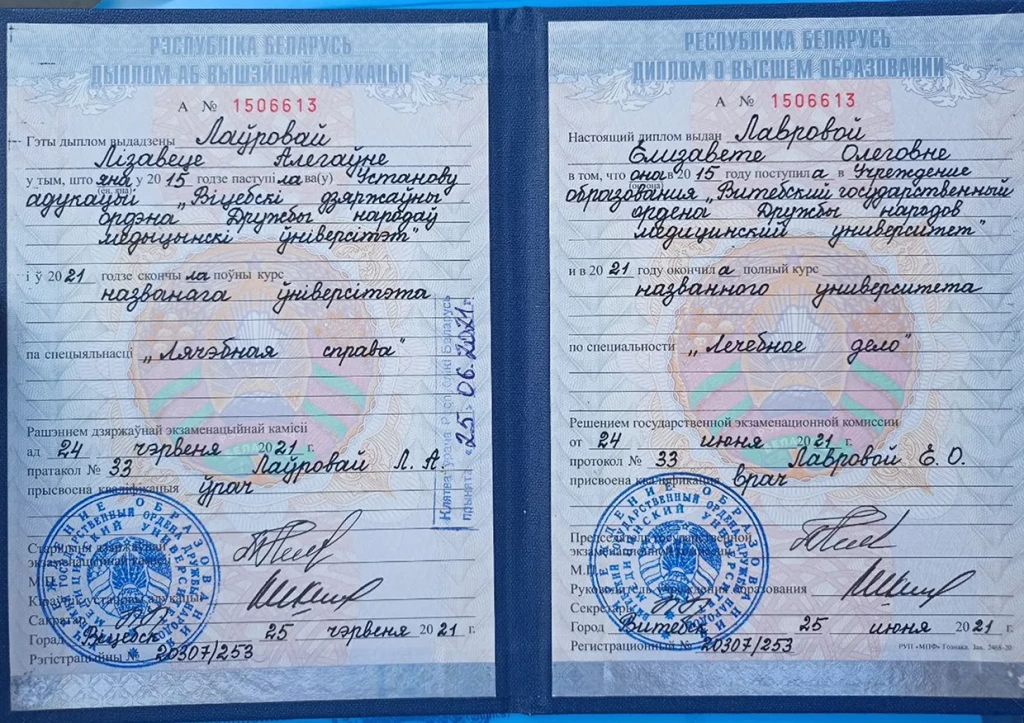 РЭСПУБЛІКА БЕЛАРУСЬ
ДЫПЛОМ АБ ВЫШЭЙШАЙ АДУКАЦЫІ
А № 1506613
Гэты дыплом выдадзены Лаўровай
Лізавеце Алегаўне
у тым, што яна у 2015 годзе паступіла ва(у) Установу
адукацыі „Віцебскі дзяржаўны
ордэна Дружбы народаў
медыцынскі ўніверсітэт"
і ў 2021 годзе скончыла поўны курс
названага ўніверсітэта
па спецыяльнасці „Лячэбная справа"
Рашэннем дзяржаўнай экзаменацыйнай камісіі
ад 24 чэрвеня 2021 г.
пратакол № 33 Лаўровай Л. А
прысвоена кваліфікацыя ўрач
Старшыня дзяржаўнай
экзаменацыйнай камісіі
М.П.
Кіраўнік установы адукацыі
Сакратар
Горад Віцебск 25 чэрвеня 2021 г.
Рэгістрацыйны № 20307/253
Клятва ўрача Рэспублікі Беларусь
прынята «25» 06.2021 г.
РЕСПУБЛИКА БЕЛАРУСЬ
ДИПЛОМ О ВЫСШЕМ ОБРАЗОВАНИИ
А № 1506613
Настоящий диплом выдан Лавровой
Елизавете Олеговне
в том, что она в 2015 году поступила в Учреждение
образования „Витебский государственный
ордена Дружбы народов
медицинский университет"
и в 2021 году окончила полный курс
названного университета
по специальности „Лечебное дело"
Решением государственной экзаменационной комиссии
от 24 июня 2021 г.
протокол № 33 Лавровой Е. О.
присвоена квалификация врач
Председатель государственной
экзаменационной комиссии
М.П.
Руководитель учреждения образования
Секретарь
Город Витебск 25 июня 2021 г.
Регистрационный № 20307/253
РУП «МПФ» Гознака. Зак. 2468-20